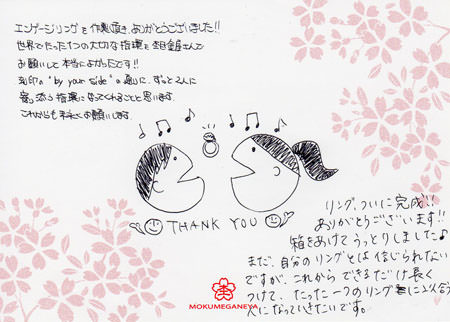 エンゲージリングを作製頂き、ありがとうございました!!
世界でたった1つの大切な指環を杢目金屋さんで
お願いして本当によかったです!!
刻印の"by your side"の通りに、ずっと2人に
寄り添う指環になってくれることと思います
これからも末永くお願いします
THANK YOU
リング、ついに完成!!
ありがとうございます!!
箱をあけてうっとりしました♪
まだ、自分のリングとは信じられない
ですが、これからできるだけ長く
つけて、たった一つのリングに似合う
人になっていきたいです。
MOKUMEGANEYA